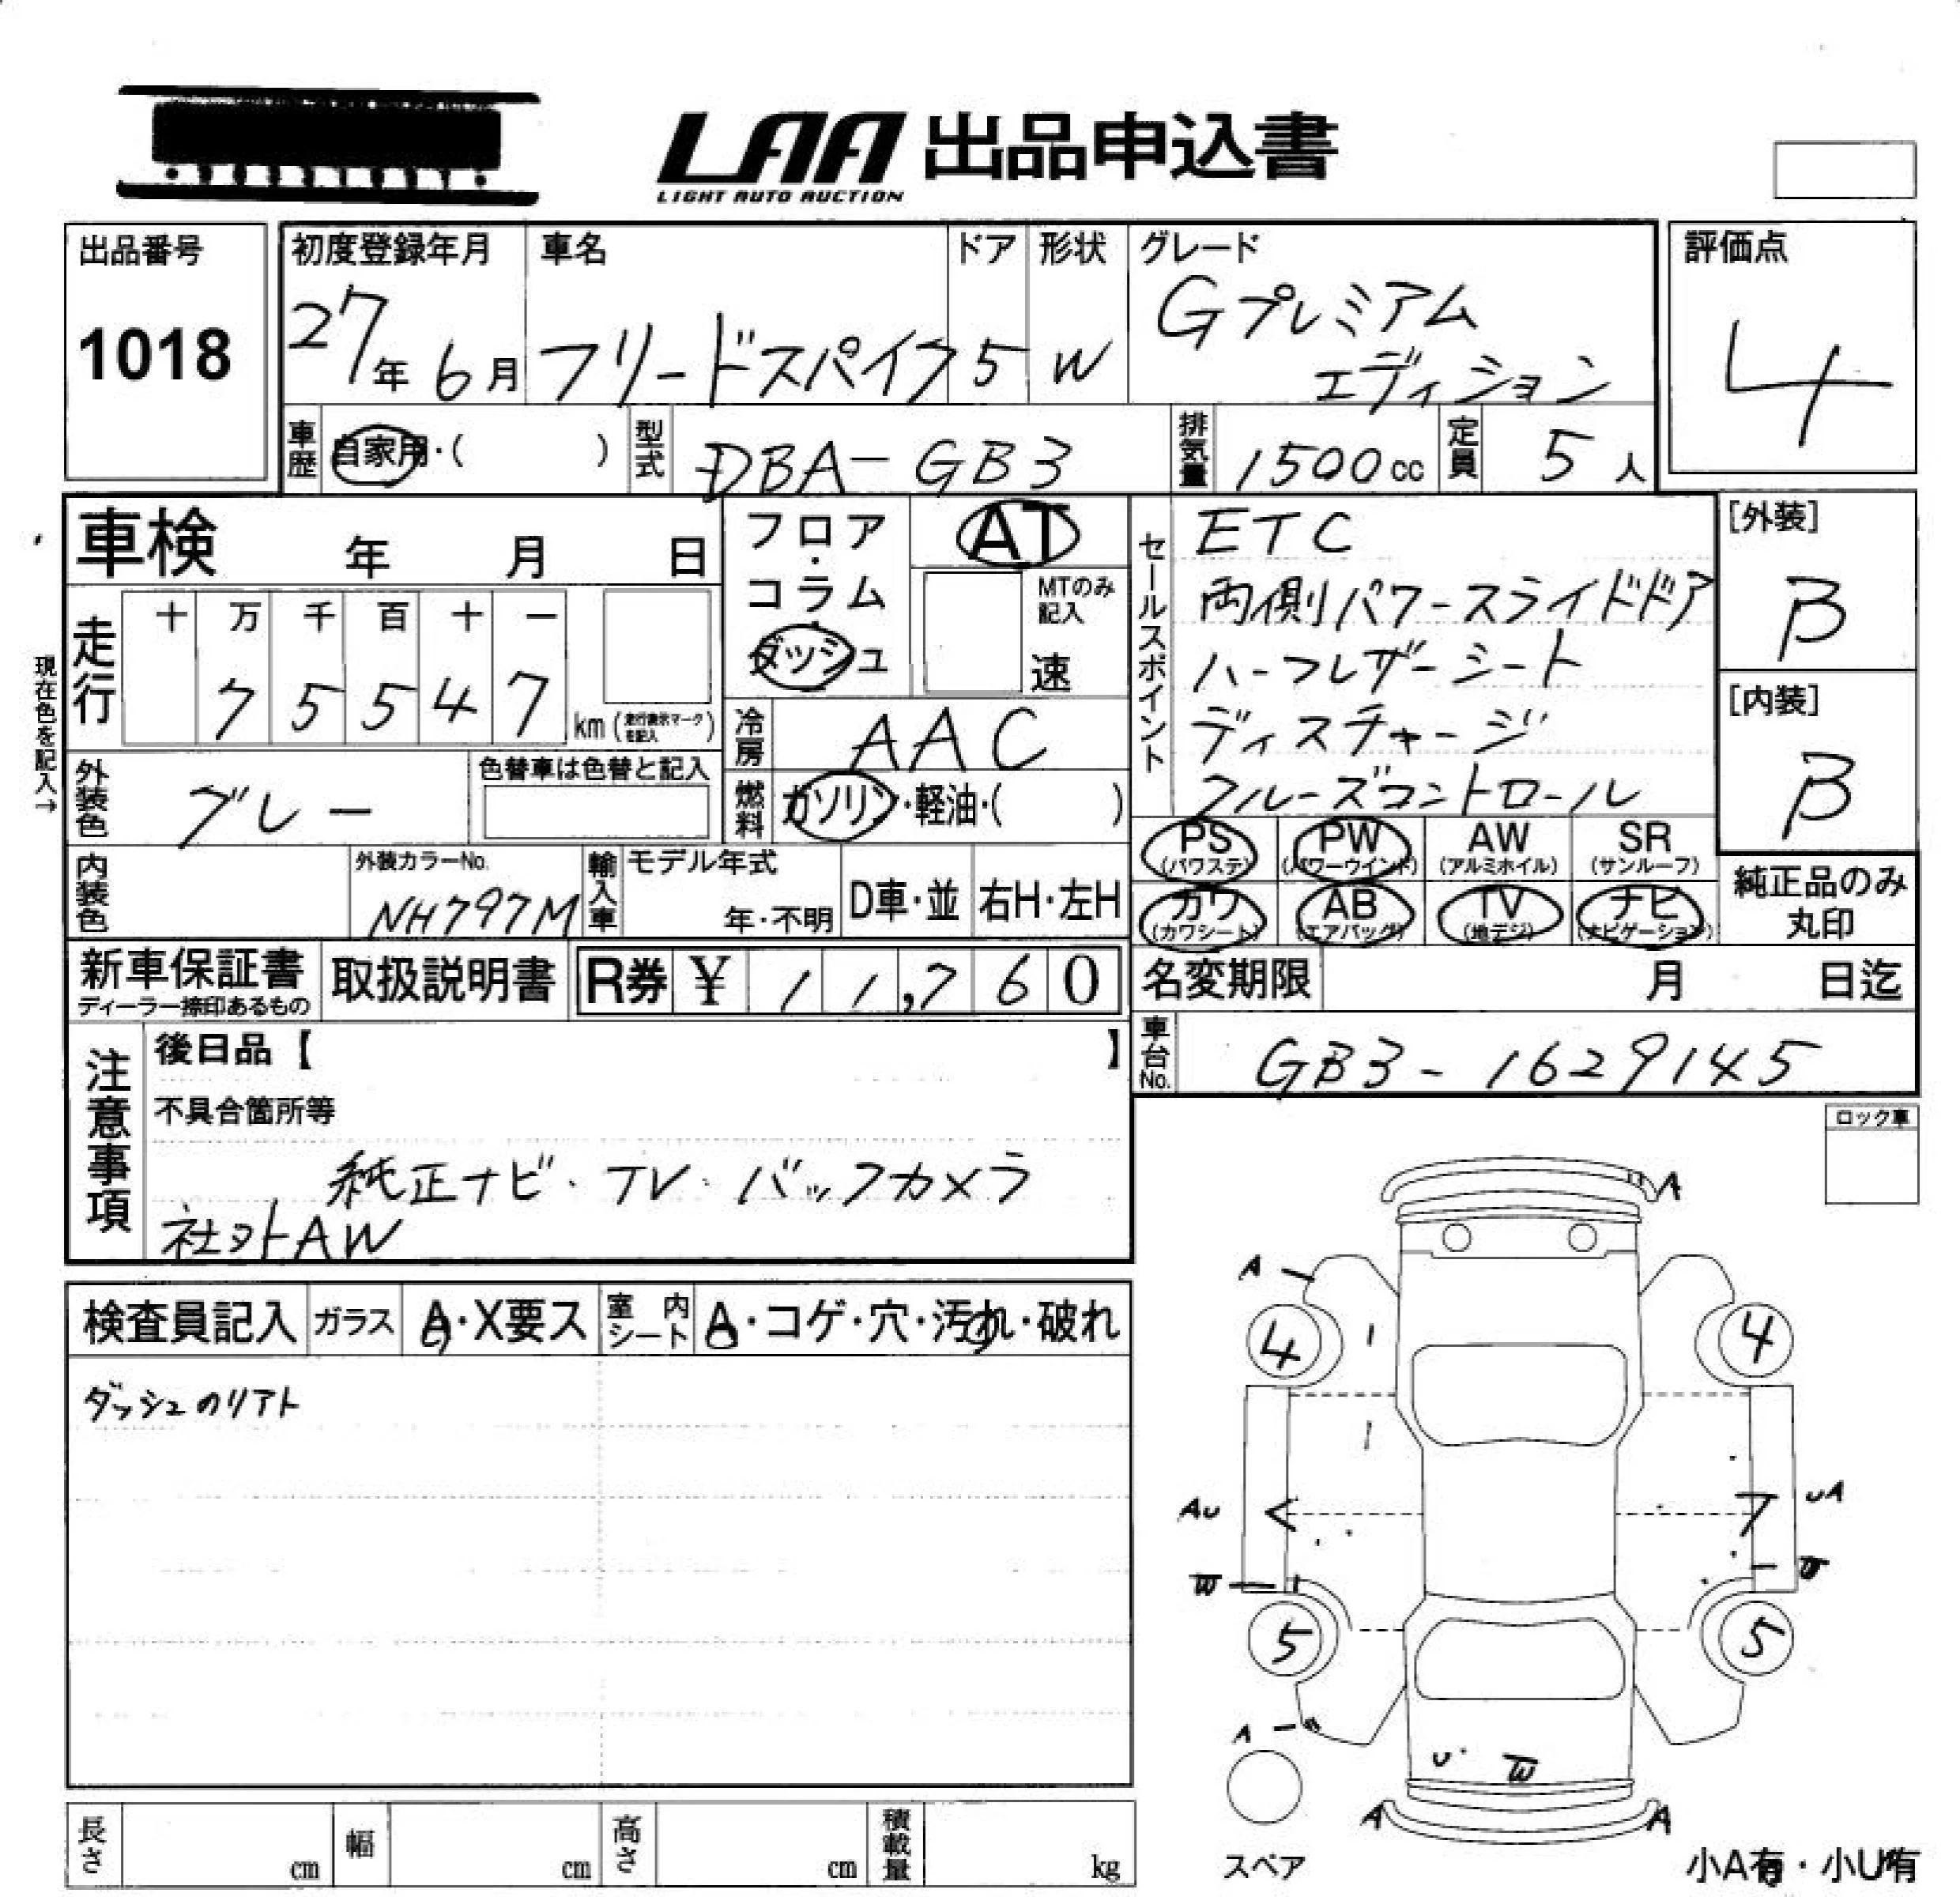 LAA 出品申込書
LIGHT AUTO AUCTION
出品番号
1018
初度登録年月
27年 6月
車名
フリードスパイク
ドア
5
形状
W
グレード
Gプレミアム
エディション
評価点
4
車歴 自家用・( )
型式 DBA-GB3
排気量 1500cc
定員 5人
車検 年 月 日
フロア・コラム・ダッシュ
AT
MTのみ記入
速
現在色を記入→
走行 十 万 千 百 十 一
7 5 5 4 7 km (走行表示マークを記入)
冷房 AAC
外装色 グレー
色替車は色替と記入
燃料 ガソリン・軽油・( )
内装色
外装カラーNo.
NH797M
輸入車 モデル年式
年・不明
D車・並
右H・左H
セールスポイント
ETC
両側パワースライドドア
ハーフレザーシート
ディスチャージ
クルーズコントロール
[外装]
B
[内装]
B
PS (パワステ) PW (パワーウインド) AW (アルミホイル) SR (サンルーフ)
カワ (カワシート) AB (エアバッグ) TV (地デジ) ナビ (ナビゲーション)
純正品のみ
丸印
新車保証書
ディーラー捺印あるもの
取扱説明書
R券 ¥ 11,760
名変期限 月 日迄
車台No. GB3-1629145
注意事項
後日品【 】
不具合箇所等
純正ナビ・TV・バックカメラ
社外AW
ロック車
検査員記入 ガラス A・X要ス 室内シート A・コゲ・穴・汚れ・破れ
ダッシュのリアト
A
A
4 4
AU UA
W W
5 5
A
U W
A A
スペア
小A有・小U有
長さ cm 幅 cm 高さ cm 積載量 kg